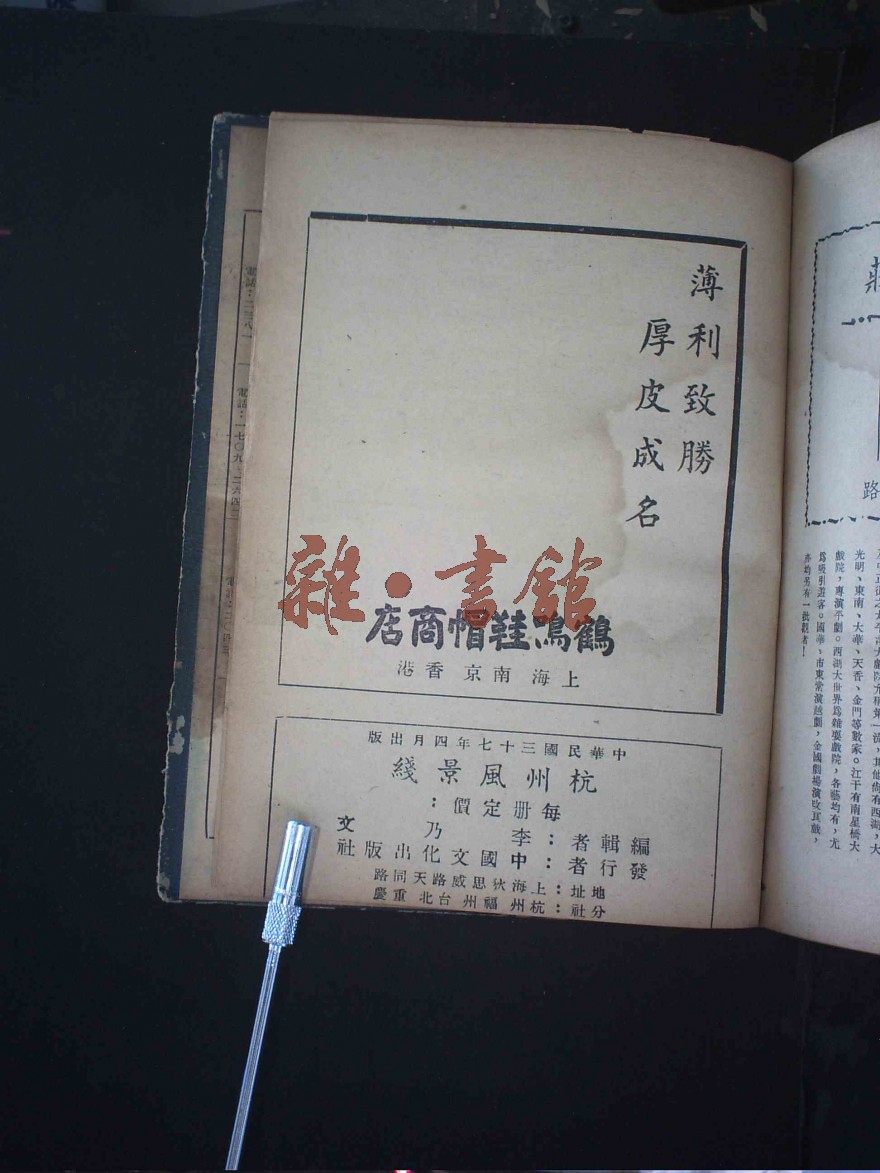 薄利致勝
厚皮成名
鶴鳴鞋帽商店
上海 南京 香港
雜·書館
中華民國三十七年四月出版
杭州風景綫
每册定價：
編輯者：李乃文
發行者：中國文化出版社
地址：上海狄思威路天同路
分社：杭州福州台北重慶
路
光明、東南、大華、天香、金門等數家。江干有南星橋大
戲院，專演平劇。西湖大世界爲雜耍戲院，各藝均有，尤
爲吸引遊客。國華、市東常演越劇，金國劇場演
亦均另有一批觀者！
電話：二三八一
電話：一七〇九